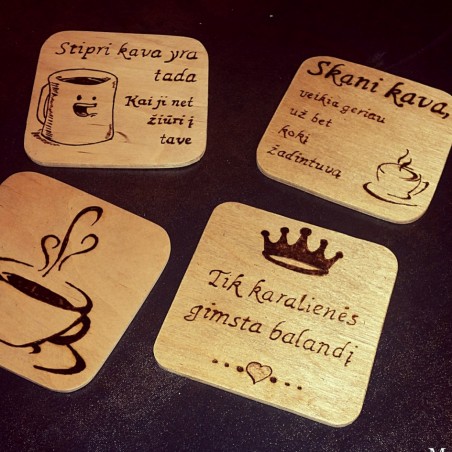 Stipri kava yra
tada
Kai ji net
žiūri į
tave
Skani kava,
veikia geriau
už bet
kokį
žadintuvą
Tik karalienės
gimsta balandį